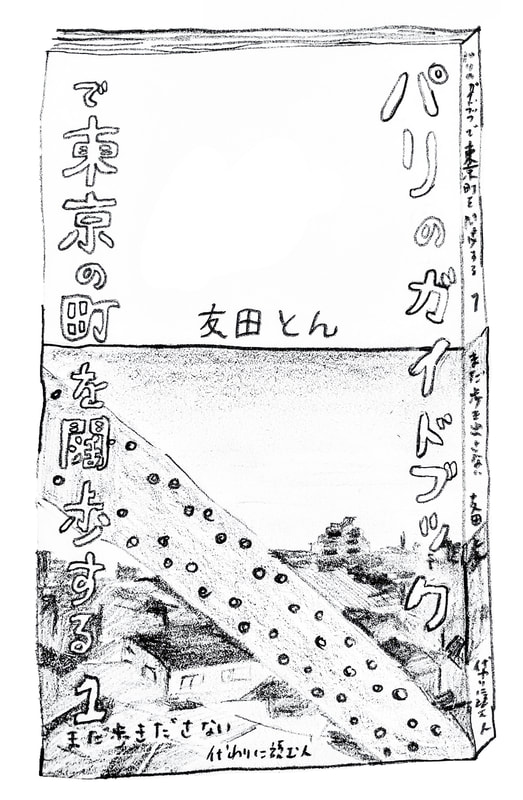 パリのガイドブック
で東京の町を闊歩する 1
友田とん
まだ歩きださない
代わりに読む人
パリのガイドブックで東京の町を闊歩する 1
まだ歩きださない
友田とん
代わりに読む人